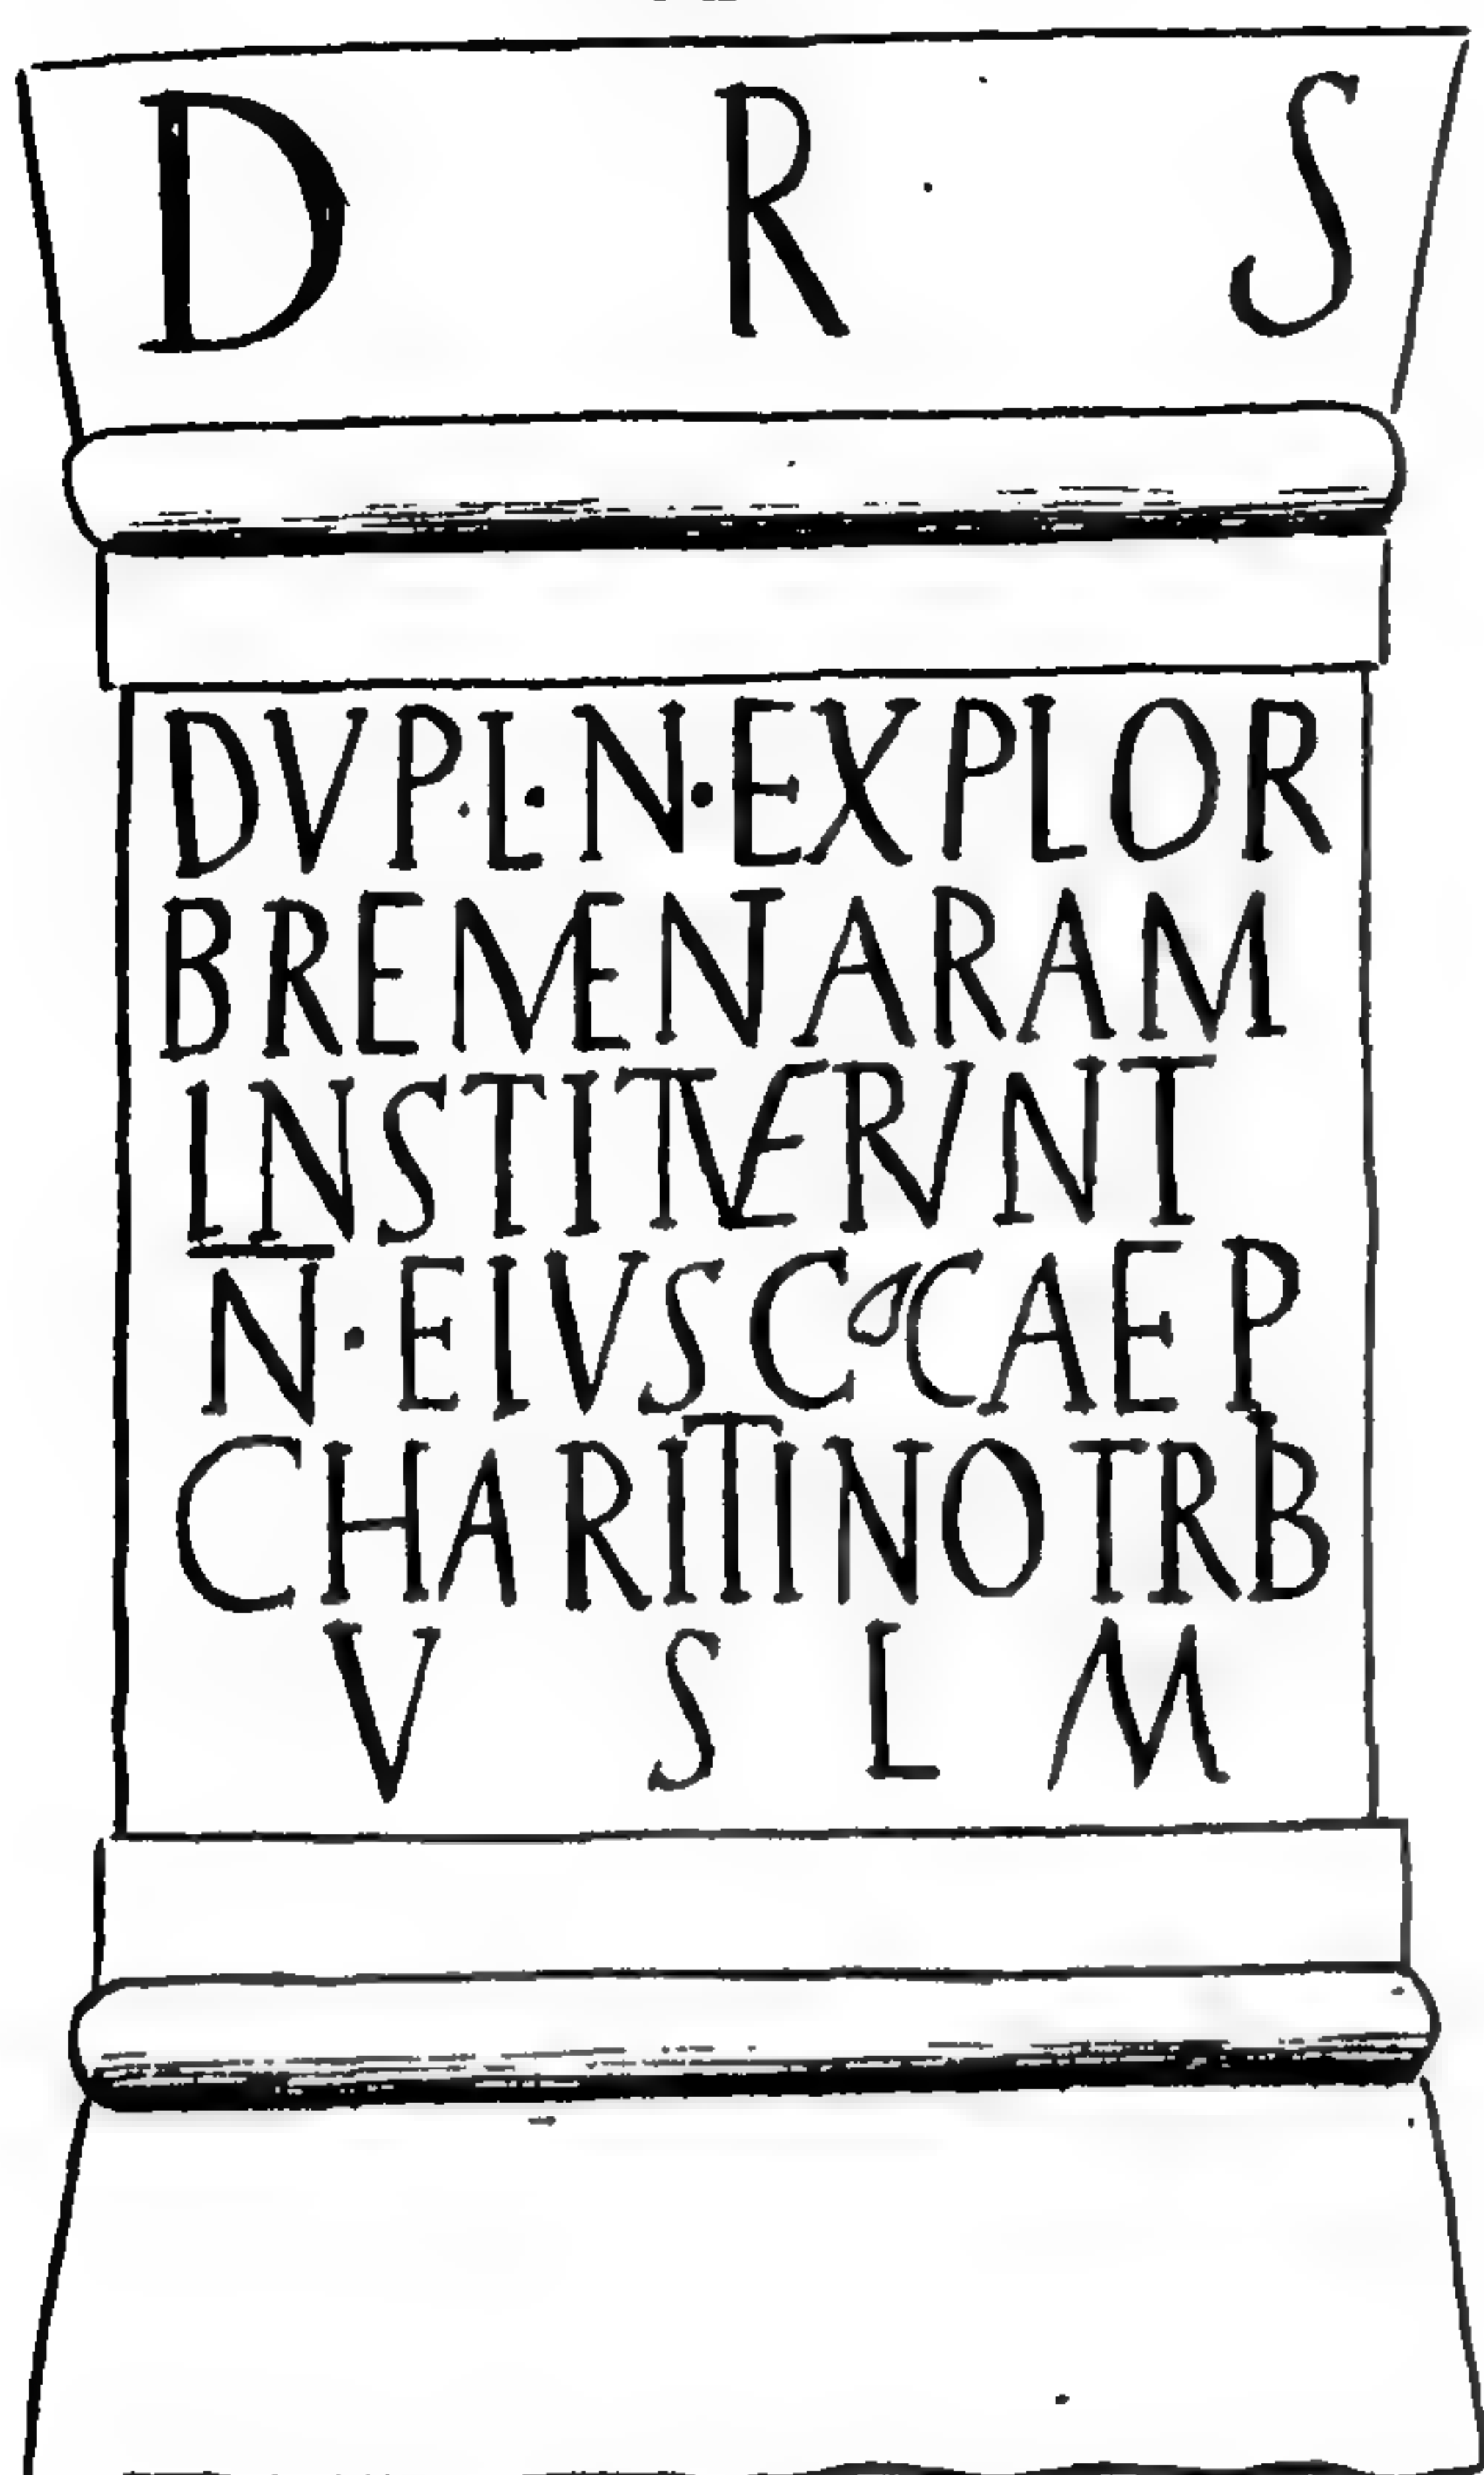 D R S
DVP·L·N·EXPLOR
BREMENARAM
INSTITVERVNT
N·EIVS C CAEP
CHARITINO TRB
V S L M